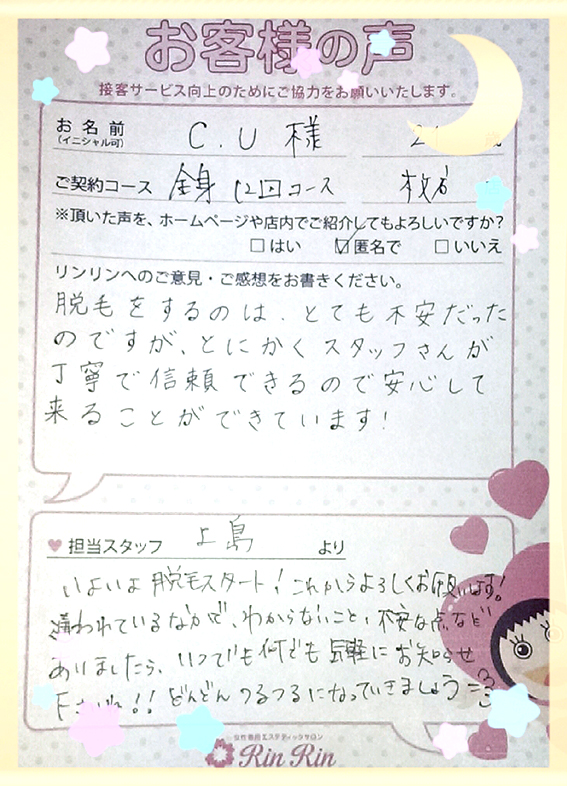 お客様の声
接客サービス向上のためにご協力をお願いいたします。
お名前 C.U 様
(イニシャル可)
ご契約コース 全身 12回コース
※頂いた声を、ホームページや店内でご紹介してもよろしいですか?
□はい ☑匿名で □いいえ
リンリンへのご意見・ご感想をお書きください。
脱毛をするのは、とても不安だった
のですが、とにかくスタッフさんが
丁寧で信頼できるので安心して
来ることができています!
担当スタッフ 上島 より
いよいよ脱毛スタート!これからよろしくお願いします!
通われているなかで、わからないこと、不安な点など
ありましたら、いつでも何でも気軽にお知らせ
下さいね!!どんどんつるつるになっていきましょう
女性専用エステティックサロン
Rin Rin